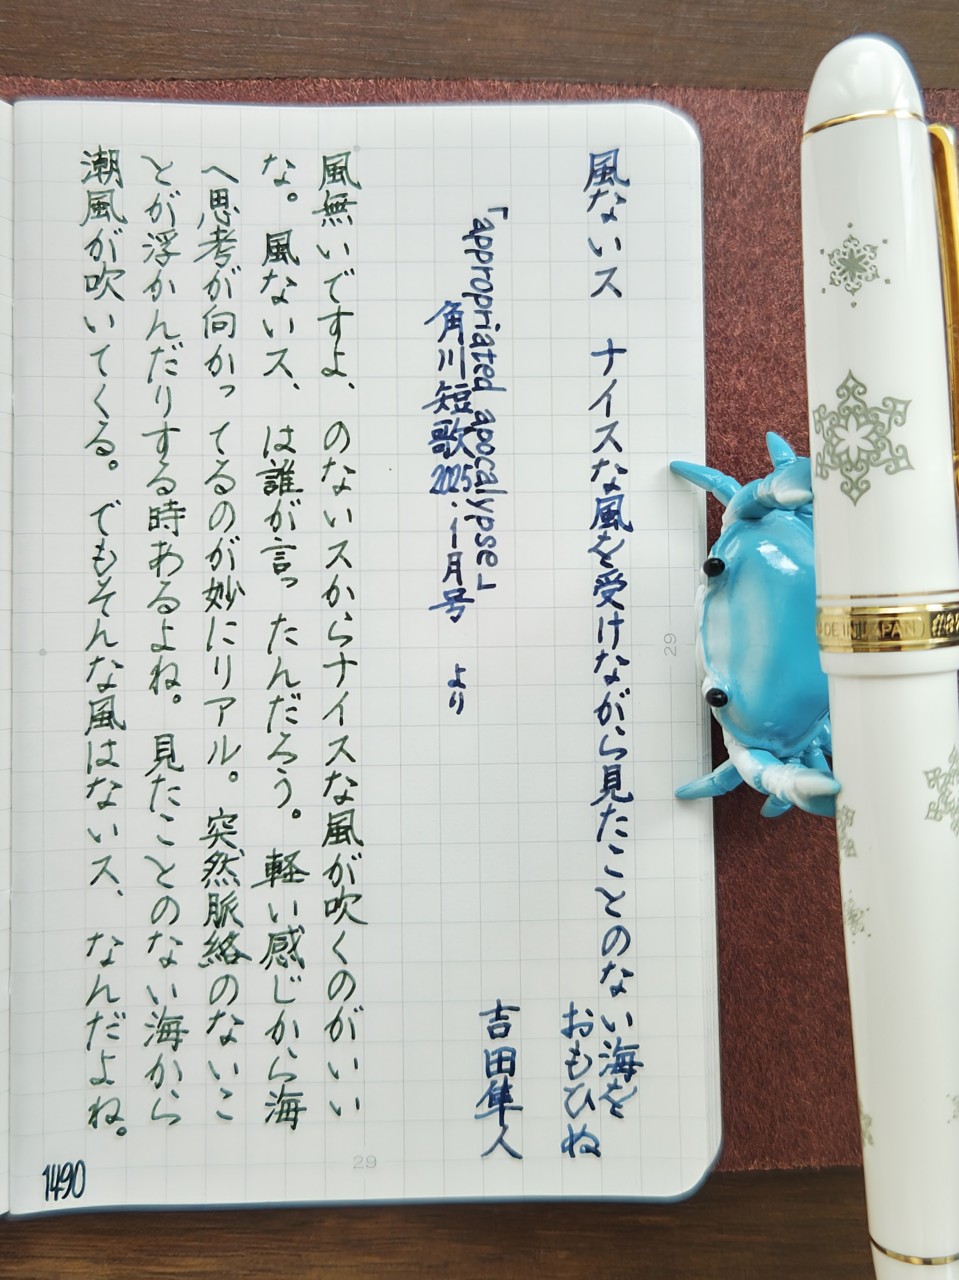 風ないス　ナイスな風を受けながら見たことのない海を
おもひぬ
吉田隼人
「appropriated apocalypse」
角川短歌2025.1月号　より
風無いですよ、のないスからナイスな風が吹くのがいい
な。風ないス、は誰が言ったんだろう。軽い感じから海
へ思考が向かってるのが妙にリアル。突然脈絡のないこ
とが浮かんだりする時あるよね。見たことのない海から
潮風が吹いてくる。でもそんな風はないス、なんだよね。
1490
29
29
DE IN JAPAN